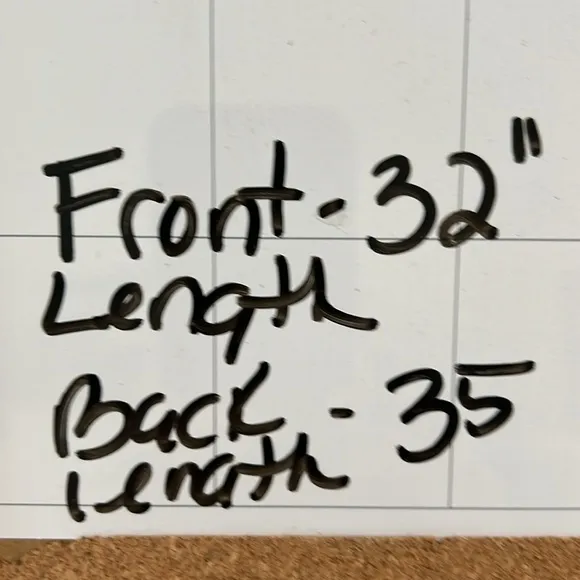 Front - 32"
Length
Back - 35
Length